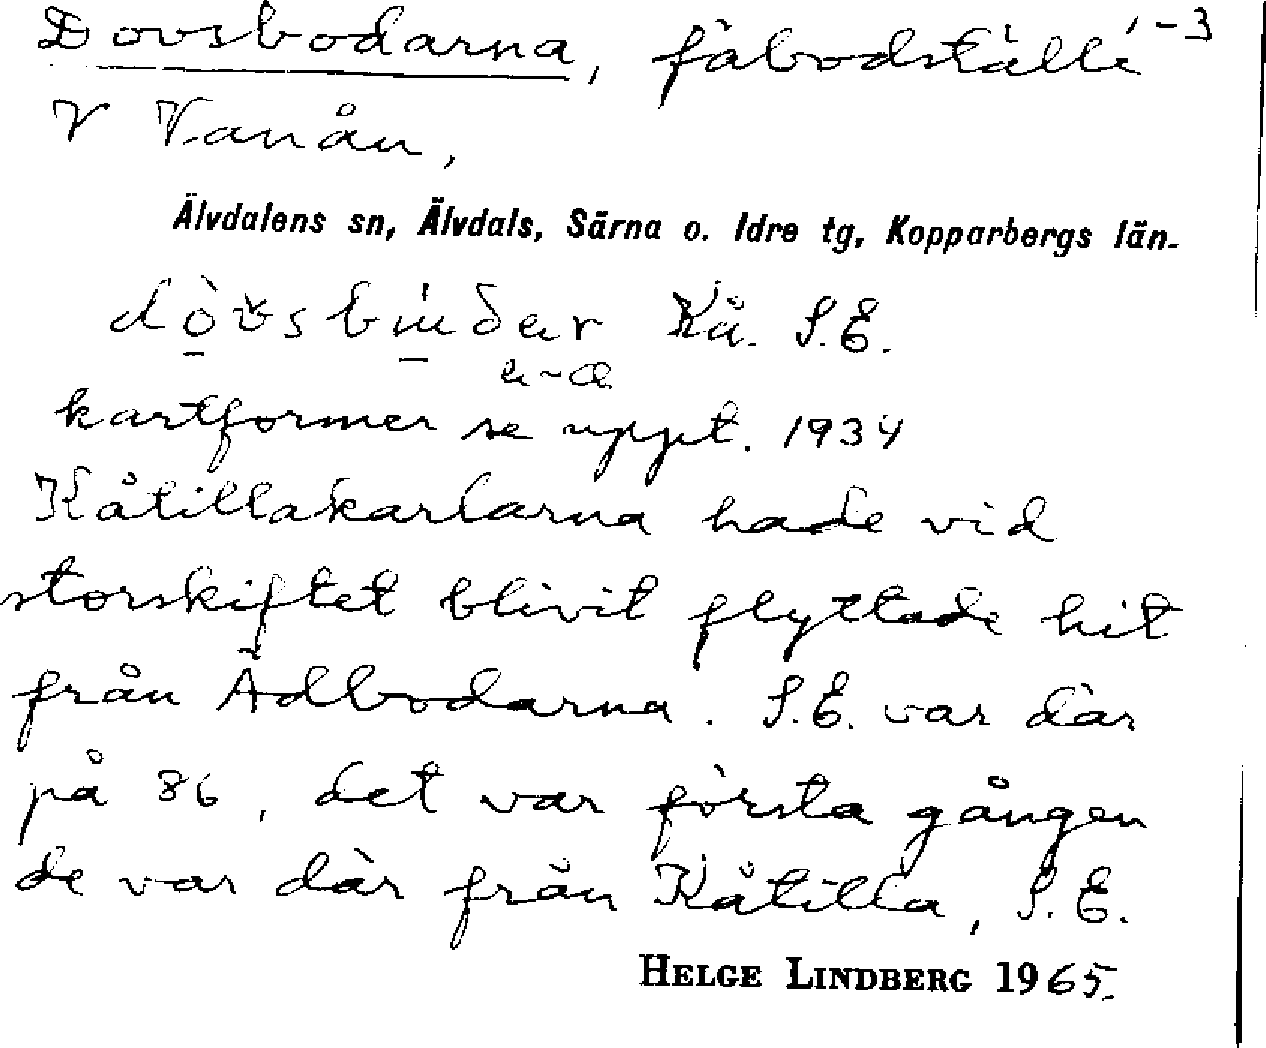 Dovsbodarna, fäbodställe 1-3
V Vanån,
Älvdalens sn, Älvdals, Särna o. Idre tg, Kopparbergs län.
Kå. S.E.
kartformer se uppt. 1934
Kåtillakarlarna hade vid
storskiftet blivit flyttade hit
från Ådbodarna. S.E. var där
på 86, det var första gången
de var där från Kåtilla, S.E.
HELGE LINDBERG 1965.